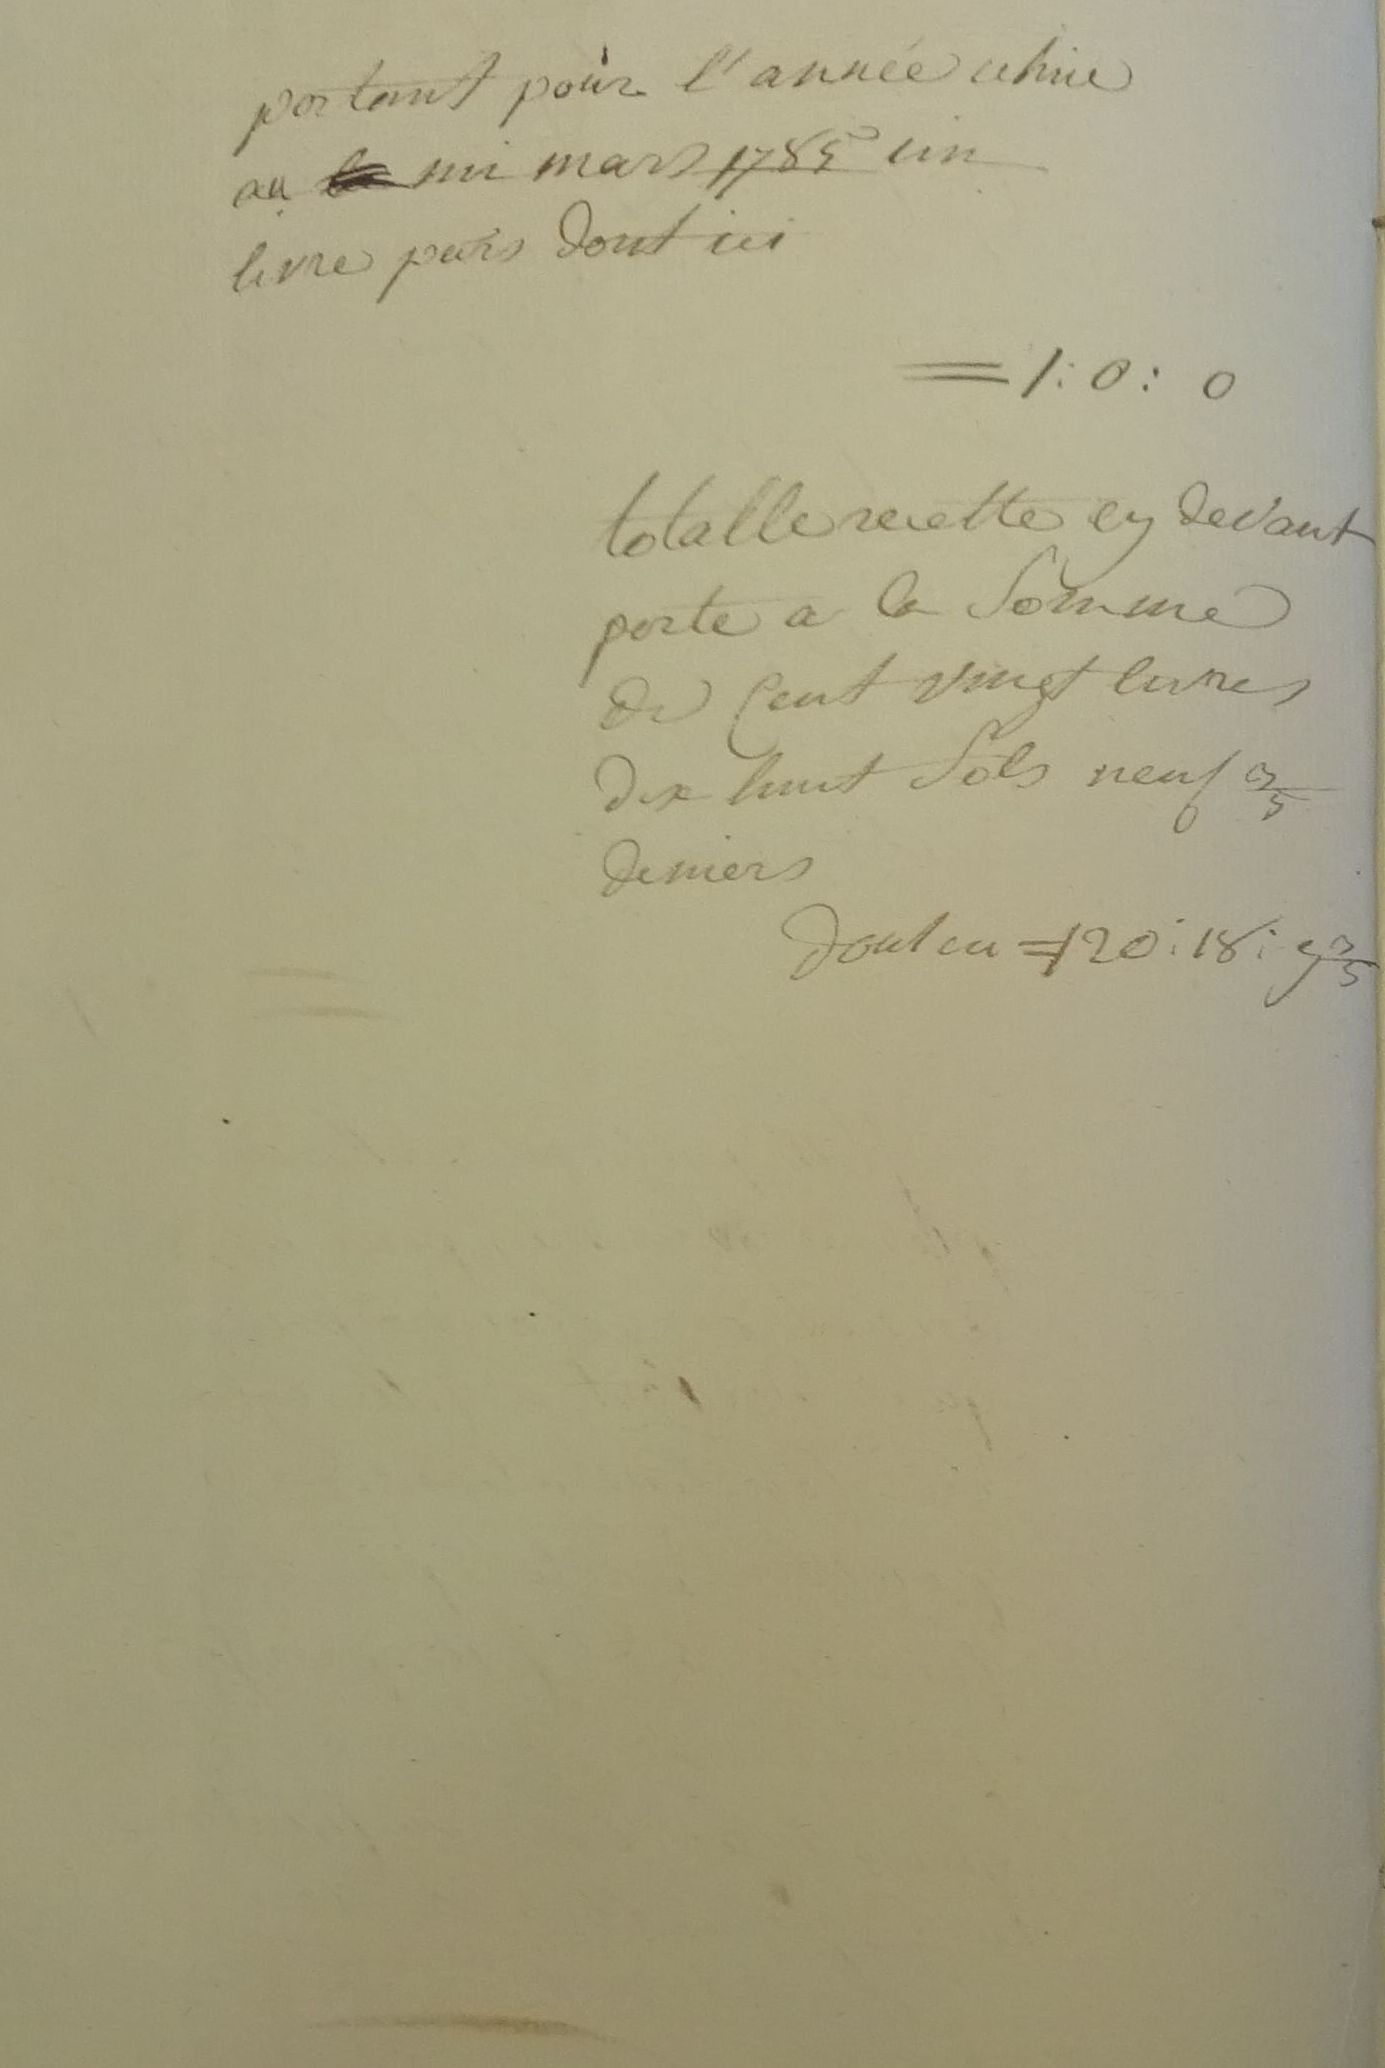 portant pour l'année echue
au mi mars 1785 un
livre paris dont ici
= 1 : 0 : 0
totalle recette cy devant
porte a la Somme
de Cent vingt livres
dix huit Sols neuf 3/5
deniers
dont cu = 120 : 18 : 9 3/5